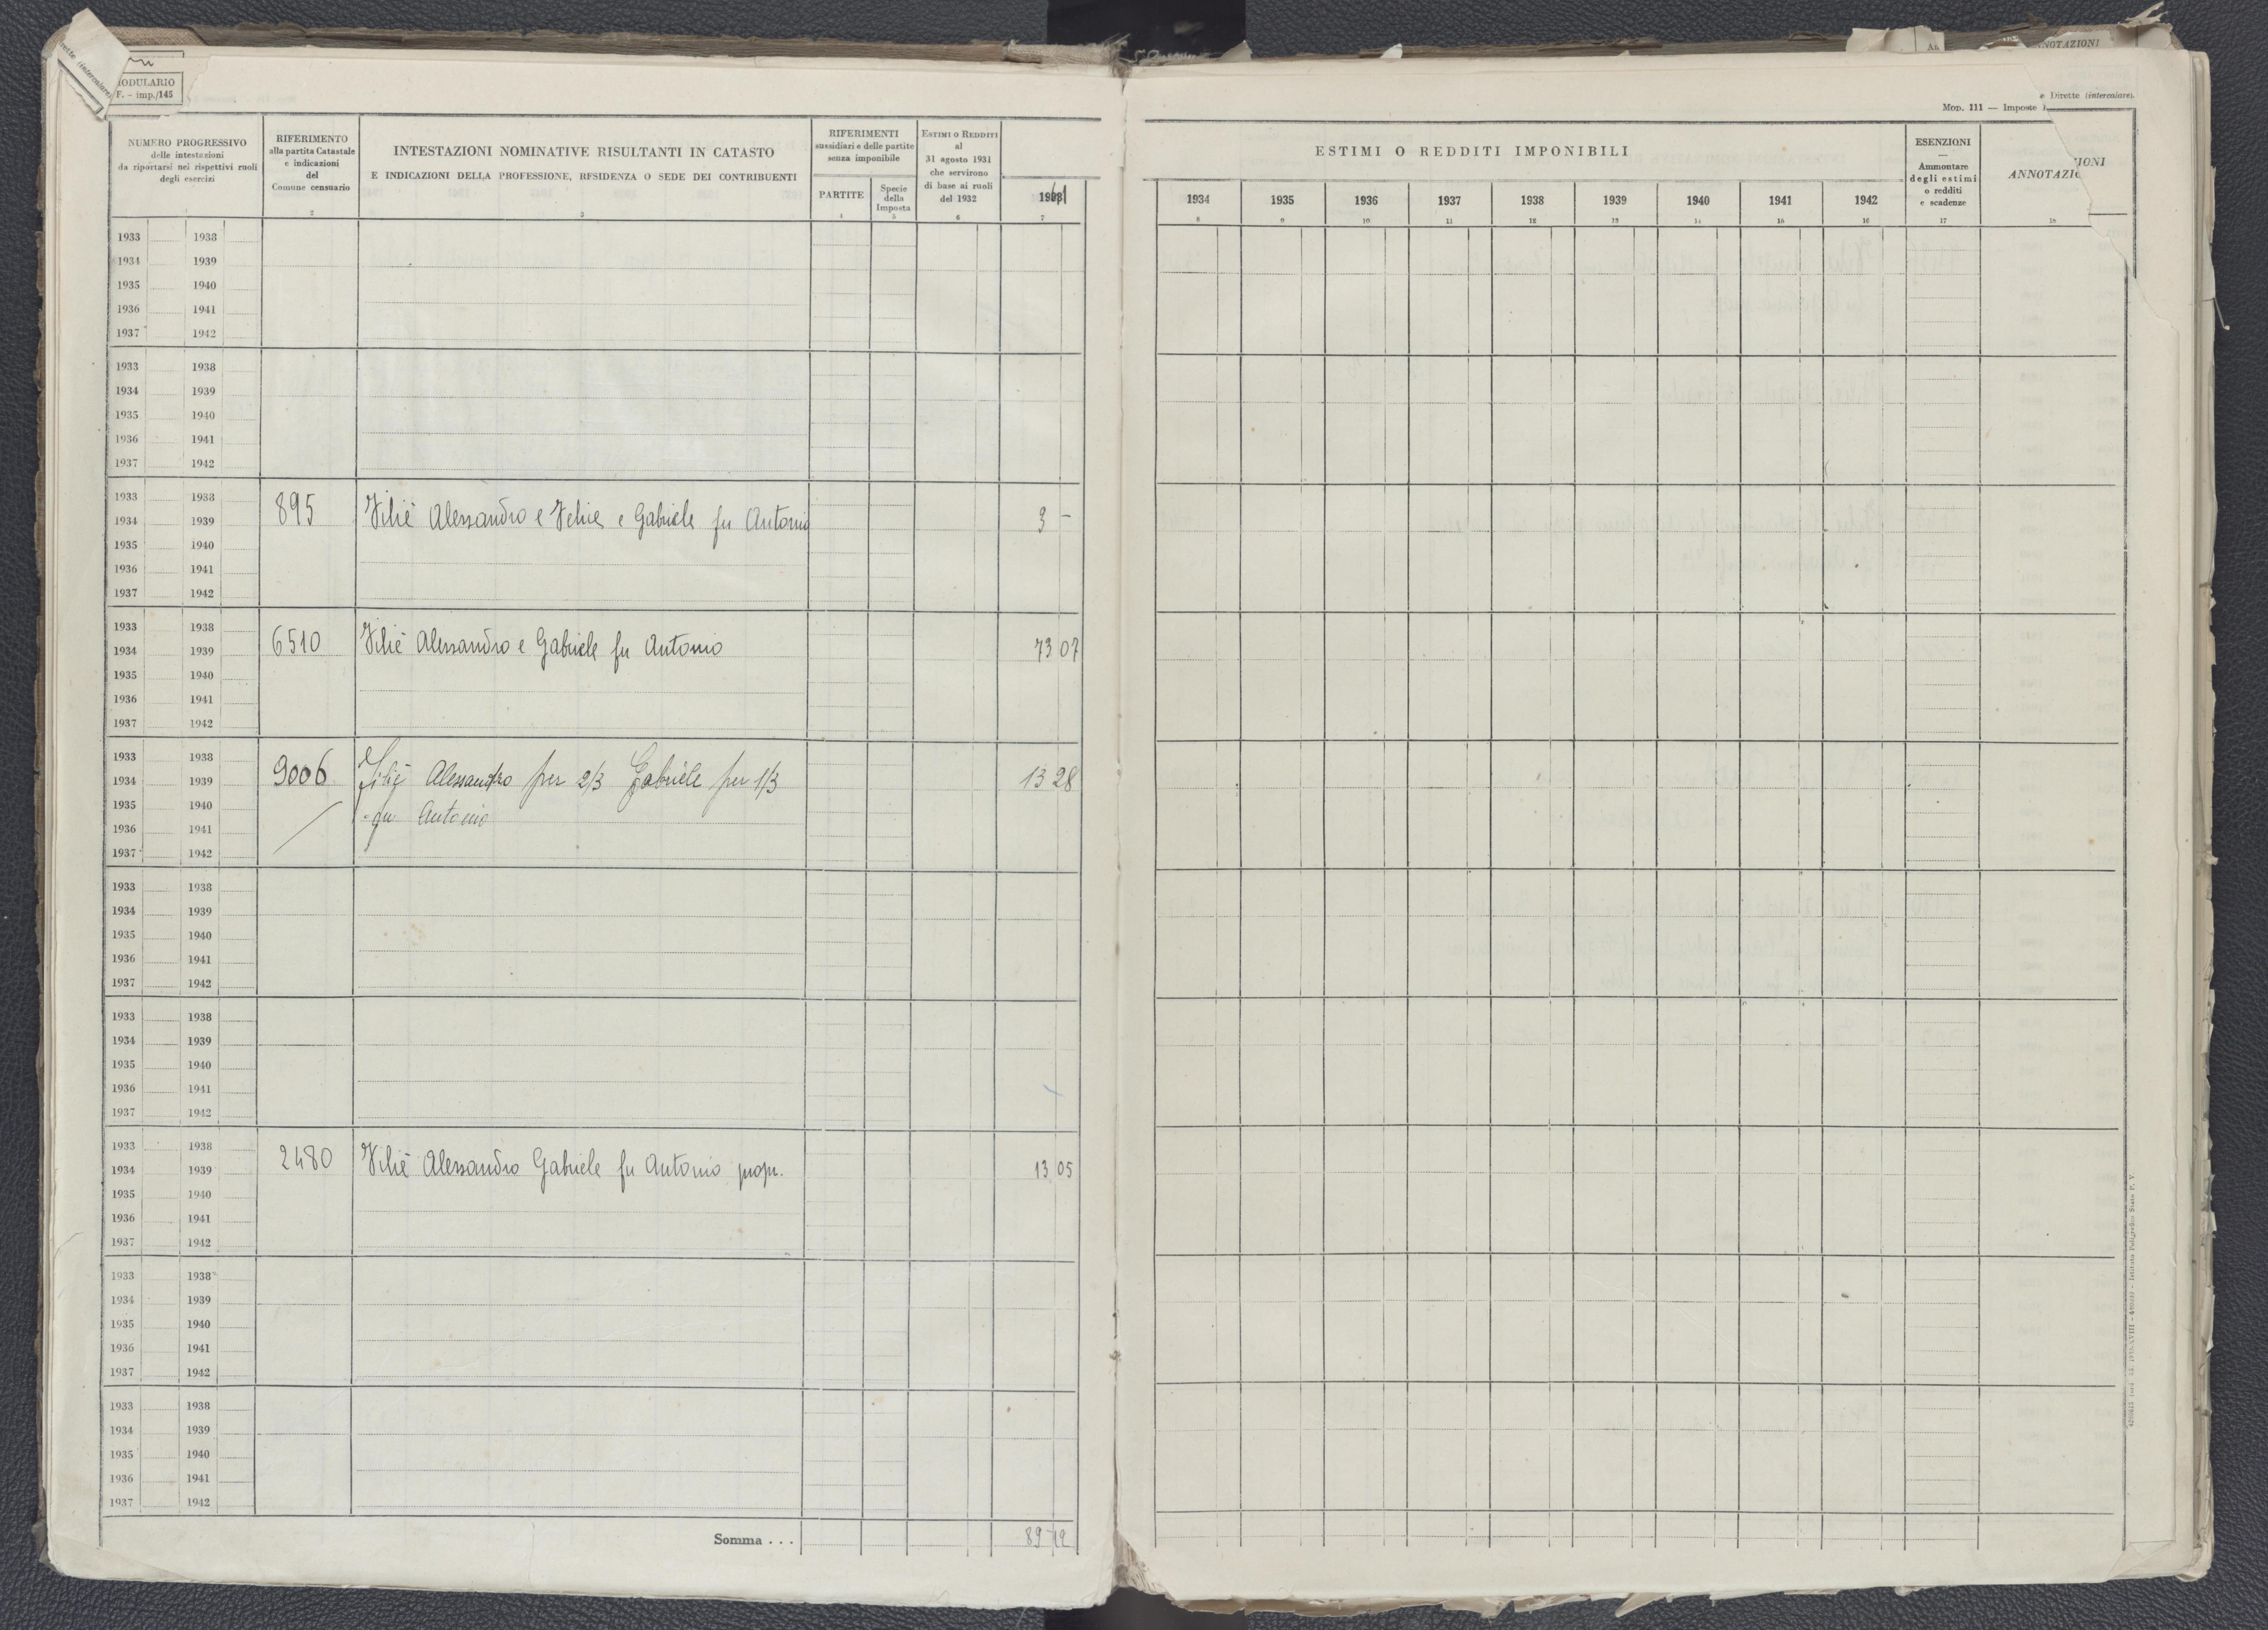 MODULARIO
F. - imp./145
NUMERO PROGRESSIVO
delle intestazioni
da riportarsi nei rispettivi ruoli
degli esercizi
RIFERIMENTO
alla partita Catastale
e indicazioni
del
Comune censuario
2
INTESTAZIONI NOMINATIVE RISULTANTI IN CATASTO
E INDICAZIONI DELLA PROFESSIONE, RESIDENZA O SEDE DEI CONTRIBUENTI
3
RIFERIMENTI
sussidiari e delle partite
senza imponibile
PARTITE
4
Specie
della
Imposta
5
ESTIMI O REDDITI
al
31 agosto 1931
che servirono
di base ai ruoli
del 1932
6
7
1933 1938
1934 1939
1935 1940
1936 1941
1937 1942
1933 1938
1934 1939
1935 1940
1936 1941
1937 1942
1933 1938
895 Alessandro e e Gabriele fu Antonio 3 -
1934 1939
1935 1940
1936 1941
1937 1942
1933 1938
6510 Alessandro e Gabriele fu Antonio 73 07
1934 1939
1935 1940
1936 1941
1937 1942
1933 1938
9006 Alessandro per 2/3 Gabriele per 1/3 13 28
1934 1939
1935 1940
fu Antonio
1936 1941
1937 1942
1933 1938
1934 1939
1935 1940
1936 1941
1937 1942
1933 1938
1934 1939
1935 1940
1936 1941
1937 1942
1933 1938
2480 Alessandro Gabriele fu Antonio propr. 13 05
1934 1939
1935 1940
1936 1941
1937 1942
1933 1938
1934 1939
1935 1940
1936 1941
1937 1942
1933 1938
1934 1939
1935 1940
1936 1941
1937 1942
Somma . . . 89
ANNOTAZIONI
e Dirette (intercalare).
MOD. 111 — Imposte
ESTIMI O REDDITI IMPONIBILI
1934 1935 1936 1937 1938 1939 1940 1941 1942
8 9 10 11 12 13 14 15 16
ESENZIONI
—
Ammontare
degli estimi
o redditi
e scadenze
17
ANNOTAZIO
18